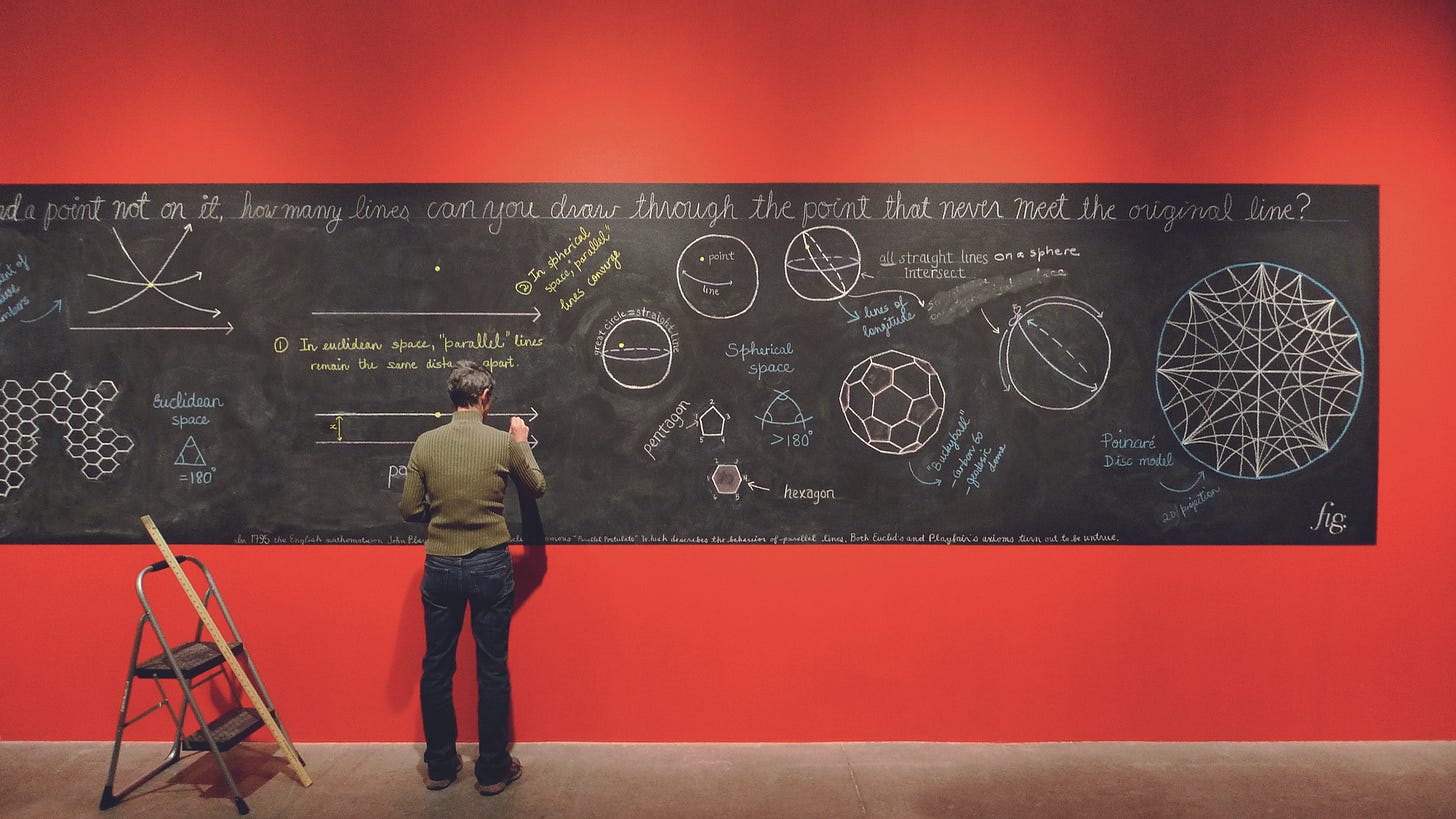 a point not on it, how many lines can you draw through the point that never meet the original line?
① In euclidean space, "parallel" lines
remain the same dista apart.
x
Euclidean
space
=180°
② In spherical
space, "parallel"
lines converge
great circle = straight line
point
line
all straight lines on a sphere
intersect
lines of
longitude
Spherical
space
>180°
pentagon
1
2
3
4
5
hexagon
"Buckyball"
- carbon 60
- geodesic
dome
Poinaré
Disc model
2D projection
fig.
In 1795 the English mathematician John Play "Parallel Postulate" which describes the behavior of parallel lines. Both Euclid's and Playfair's axioms turn out to be untrue.